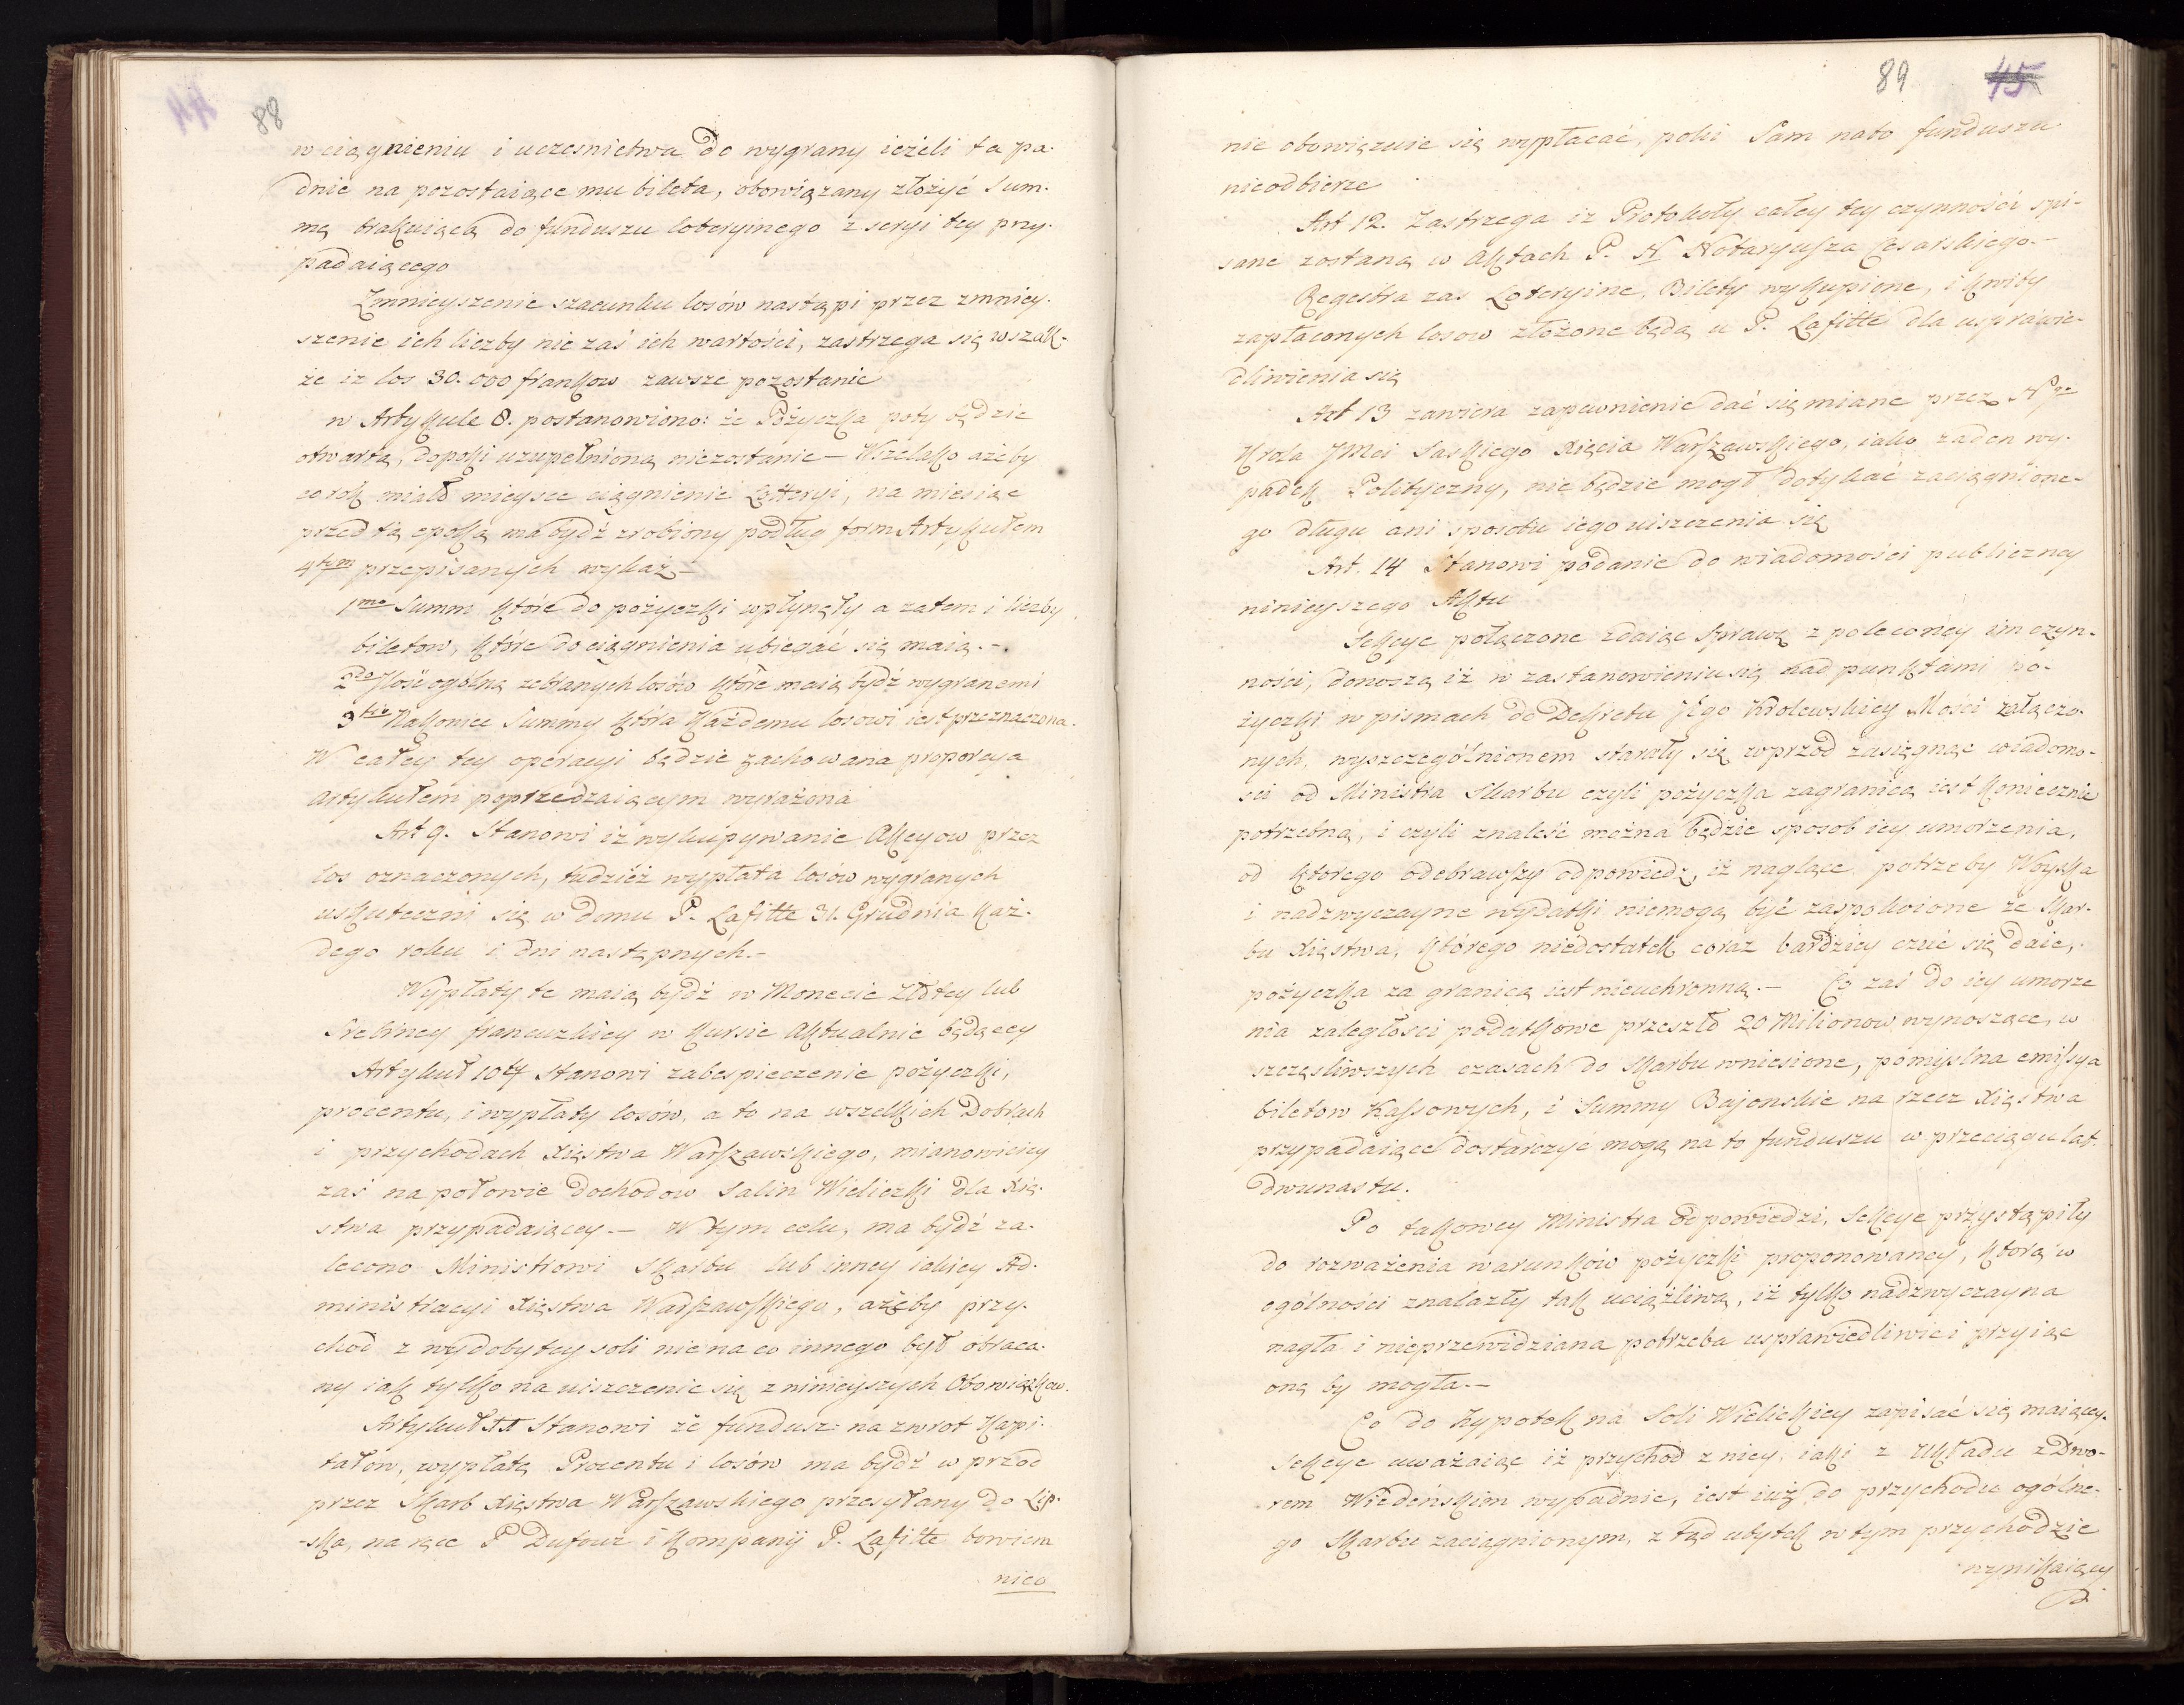 88
w ciągnieniu i uczesnictwa do wygrany ieżeli ta pa-
dnie na pozostaiące mu bileta, obowiązany złożyć Sum-
mę brakuiącą do funduszu loteryinego z seryi tey przy-
padaiącego
Zmnieyszenie szacunku losów nastąpi przez zmniey-
szenie ich liczby nie zaś ich wartości, zastrzega się wszak-
że iz los 30.000 frankow zawsze pozostanie
w Artykule 8. postanowiono: że Pożyczka poty będzie
otwartą, dopoki uzupełnioną niezostanie — Wszelako ażeby
co rok miało mieysce ciągnienie Lotteryi, na miesiąc
przed tą epoką ma bydź zrobiony podług form Artykułem
4tym przepisanych wykaz —
1mo Summ które do pożyczki wpłynęły a zatem i liczby
biletow, które do ciągnienia ubiegać się maią. —
2do Ilość ogólną zebranych losów które maią bydź wygranemi
3tio Nakoniec Summy która każdemu losowi iest przeznaczona.
W całey tey operacyi będzie zachowana proporcya
artykułem poprzedzaiącym wyrażona
Art 9. Stanowi iz wykupywanie Akcyow przez
los oznaczonych, tudzież wypłata losów wygranych
uskuteczni się w domu P. Lafitte 31. Grudnia każ-
dego roku i dni następnych. —
Wypłaty te maią bydź w Monecie Złotey lub
Srebrney francuzkiey w kursie Aktualnie będącey
Artykuł 10ty Stanowi zabespieczenie pożyczki,
procentu, i wypłaty losów, a to na wszelkich Dobrach
i przychodach Xięstwa Warszawskiego, mianowiciey
zaś na połowie dochodow Salin Wieliczki dla Xię-
stwa przypadaiącey. — W tym celu, ma bydź za-
lecono Ministrowi Skarbu lub inney iakiey Ad-
ministracyi Xięstwa Warszawskiego, ażeby przy-
chod z wydobytey soli nie na co innego był obraca-
ny iak tylko na uiszczenie się z ninieyszych Obowiązkow.
Artykuł 11 Stanowi że fundusz na zwrot Kapi-
tałow, wypłatę Procentu i losów ma bydź w przod
przez Skarb Xięstwa Warszawskiego przesyłany do Lip-
-ska, na ręce P Dufour i kompanij P. Lafitte bowiem
nico
89 45
nie obowiązuie się wypłacać, poki Sam nato funduszu
nieodbierze
Art 12. Zastrzega iz Protokoły całey tey czynności spi-
sane zostaną w Aktach P. N Notaryusza Cesarskiego. —
Regestra zas Loteryine, Bilety wykupione, i kwity
zapłaconych losow złożone będą u P. Lafitte dla usprawie-
dliwienia się
Art 13 zawiera zapewnienie dać się miane przez Ngo
Krola JMci Saskiego Xięcia Warszawskiego, iako zaden wy-
padek Polityczny, nie będzie mogł dotykać zaciągnione-
go długu ani sposobu iego uiszczenia się
Art. 14 Stanowi podanie do wiadomości publiczney
ninieyszego Aktu
Sekcye połączone zdaiąc Sprawę z poleconey im czyn-
ności, donoszą iż w zastanowieniu się nad punktami po-
życzki w pismach do Dekretu Jego Krolewskiey Mości załączo-
nych, wyszczególnionem starały się wprzod zasięgnąc wiadomo-
sci od Ministra Skarbu czyli pożyczka zagranicą iest koniecznie
potrzebną, i czyli znaleść można będzie sposob iey umorzenia,
od którego odebrawszy odpowiedz, iż naglące potrzeby Woyska
i nadzwyczayne wydatki niemogą być zaspokoione ze Skar-
bu Xięstwa, którego niedostatek coraz bardziey czuć się daie,
pożyczka za granicą iest nieuchronną. — Co zaś do iey umorze
nia zaległości podatkowe przeszło 20 Milionow wynoszące, w
szczęsliwszych czasach do Skarbu wniesione, pomyslna emissya
biletow Kassowych, i Summy Bajonskie na rzecz Xięstwa
przypadaiące dostarczyć mogą na to funduszu w przeciągu lat
dwunastu.
Po takowey Ministra odpowiedzi, Sekcye przystąpiły
do rozważenia warunków pożyczki proponowaney, którą w
ogólności znalazły tak uciążliwą, iż tylko nadzwyczayna
nagła i nieprzewidziana potrzeba usprawiedliwić i przyiąc
oną by mogła. —
Co do hypotek na Soli Wielickiey zapisać się maiącey.
Sekcye uważaiąc iż przychod z niey, iaki z Układu z Dwo-
rem Wiedeńskim wypadnie, iest iuż do przychodu ogólne-
go Skarbu zaciągnionym, z tąd ubytek w tym przychodzie
wynikaiący